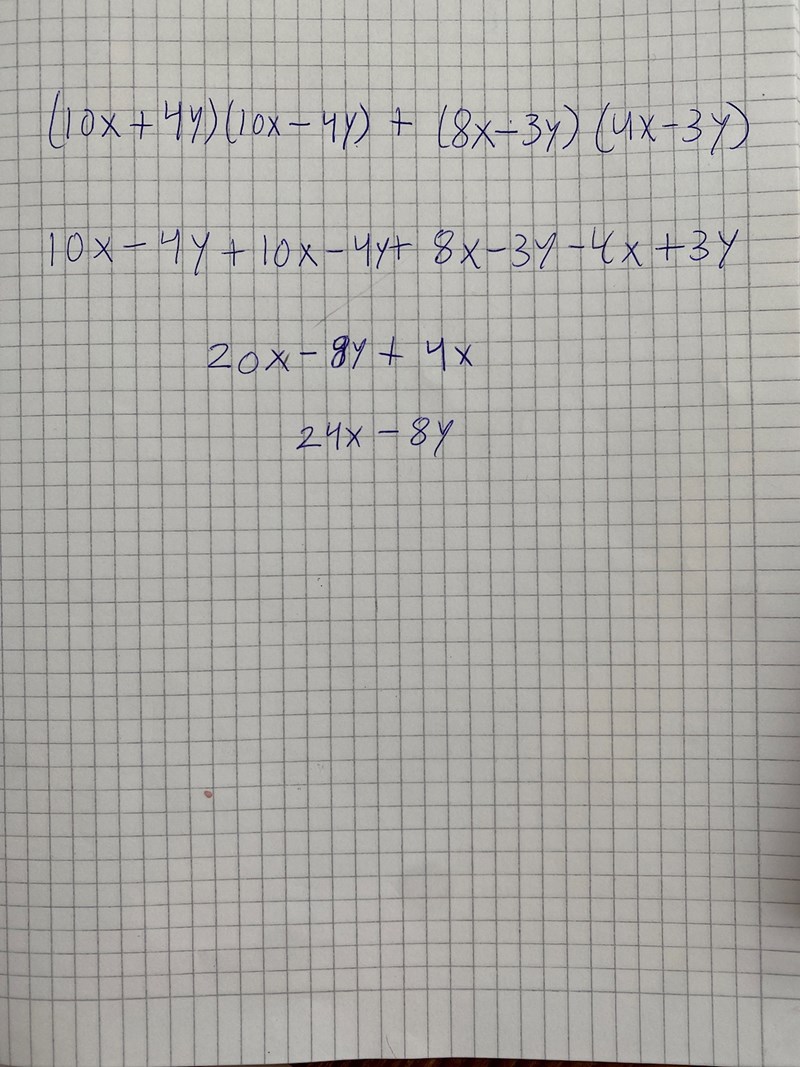 (10x+4y)(10x-4y) + (8x-3y) (4x-3y)
10x-4y+10x-4y+ 8x-3y-4x+3y
20x-8y+ 4x
24x-8y